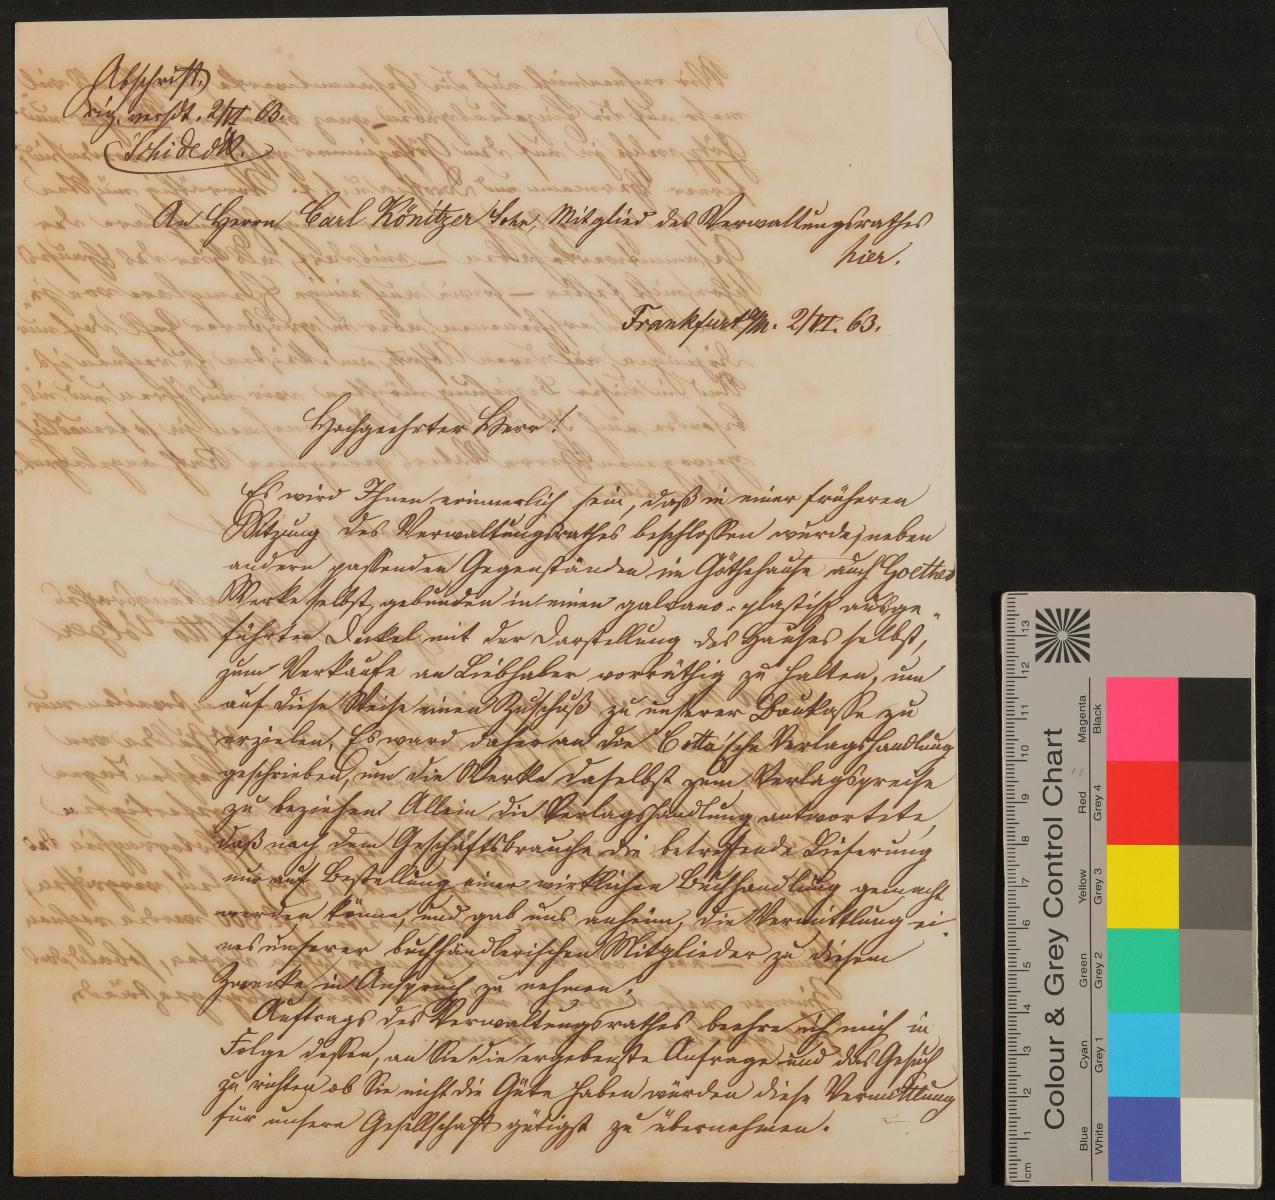 Abschrift.
rig. versdt. 2/VI 63.
An Herrn Carl Könitzer Sohn, Mitglied des Verwaltungsrathes
hier.
Frankfurt a/M. 2/VI. 63.
Hochgeehrter Herr!
Es wird Ihnen erinnerlich sein, daß in einer früheren
Sitzung des Verwaltungsrathes beschlossen wurde, neben
andern passenden Gegenständen im Göthehause auch Goethes
Werke selbst, gebunden in einen galvano-plastisch ausge-
führten Deckel mit der Darstellung des Hauses selbst,
zum Verkaufe an Liebhaber vorräthig zu halten, um
auf diese Weise einen Zuschuß zu unserer Baukasse zu
erzielen. Es ward daher an die Cotta'sche Verlagshandlung
geschrieben, um die Werke daselbst zum Verlagspreise
zu beziehen. Allein die Verlagshandlung antwortete,
daß nach dem Geschäftsbrauche die betreffende Lieferung
nur auf Bestellung einer wirklichen Buchhandlung gemacht
werden könne, und gab uns anheim, die Vermittlung ei-
nes unserer buchhändlerischen Mitglieder zu diesem
Zwecke in Anspruch zu nehmen.
Auftrags des Verwaltungsrathes beehre ich mich in
Folge dessen, an Sie die ergebenste Anfrage und das Gesuch
zu richten, ob Sie nicht die Güte haben würden diese Vermittlung
für unsere Gesellschaft gütigst zu übernehmen.
cm 1 2 3 4 5 6 7 8 9 10 11 12 13
Colour & Grey Control Chart
Blue Cyan Green Yellow Red Magenta
White Grey 1 Grey 2 Grey 3 Grey 4 Black